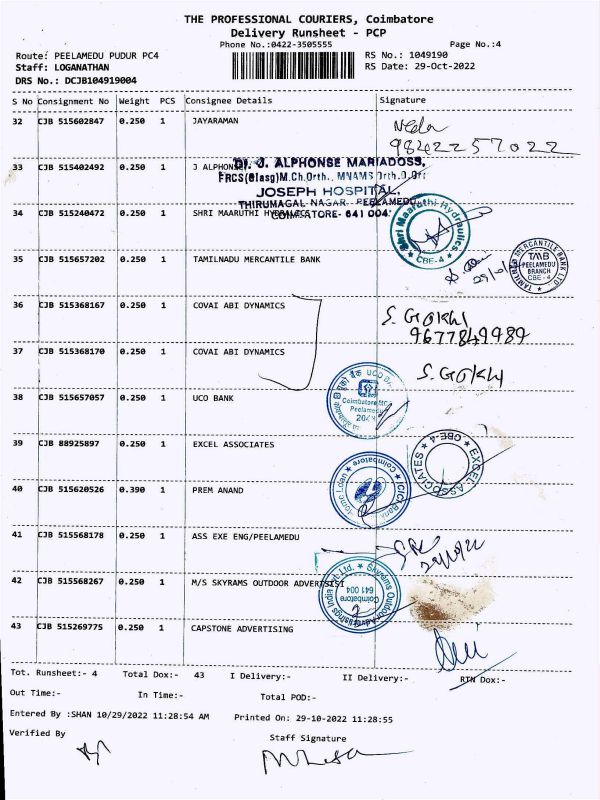 THE PROFESSIONAL COURIERS, Coimbatore
Delivery Runsheet - PCP
Phone No.:0422-3505555 Page No.:4
Route: PEELAMEDU PUDUR PC4 RS No.: 1049190
Staff: LOGANATHAN RS Date: 29-Oct-2022
DRS No.: DCJB104919004
S No Consignment No Weight PCS Consignee Details Signature
32 CJB 515602847 0.250 1 JAYARAMAN
9842257022
33 CJB 515402492 0.250 1 J ALPHONSE
Dr. J. ALPHONSE MARIADOSS,
FRCS(Glasg)M.Ch.Orth., MNAMS Orth.D.Ort
JOSEPH HOSPITAL,
THIRUMAGAL NAGAR, PEELAMEDU
COIMBATORE- 641 004.
34 CJB 515240472 0.250 1 SHRI MAARUTHI HYDRAULICS
Shri Maaruthi Hydraulics
CBE-4
35 CJB 515657202 0.250 1 TAMILNADU MERCANTILE BANK
TAMILNAD MERCANTILE BANK LTD
TMB
PEELAMEDU
BRANCH
CBE - 4
36 CJB 515368167 0.250 1 COVAI ABI DYNAMICS
S. GOKUL
9677849989
37 CJB 515368170 0.250 1 COVAI ABI DYNAMICS
S. GOKUL
38 CJB 515657057 0.250 1 UCO BANK
UCO BANK
Coimbatore
Peelamedu
39 CJB 88925897 0.250 1 EXCEL ASSOCIATES
EXCEL ASSOCIATES
CBE-4
40 CJB 515620526 0.390 1 PREM ANAND
ICICI Bank
Home Loan
Coimbatore
41 CJB 515568178 0.250 1 ASS EXE ENG/PEELAMEDU
29/10/22
42 CJB 515568267 0.250 1 M/S SKYRAMS OUTDOOR ADVERTSISI
Skyrams Outdoor Advertisings India Pvt. Ltd.
Coimbatore
641 004
43 CJB 515269775 0.250 1 CAPSTONE ADVERTISING
Tot. Runsheet:- 4 Total Dox:- 43 I Delivery:- II Delivery:- RTN Dox:-
Out Time:- In Time:- Total POD:-
Entered By :SHAN 10/29/2022 11:28:54 AM Printed On: 29-10-2022 11:28:55
Verified By Staff Signature